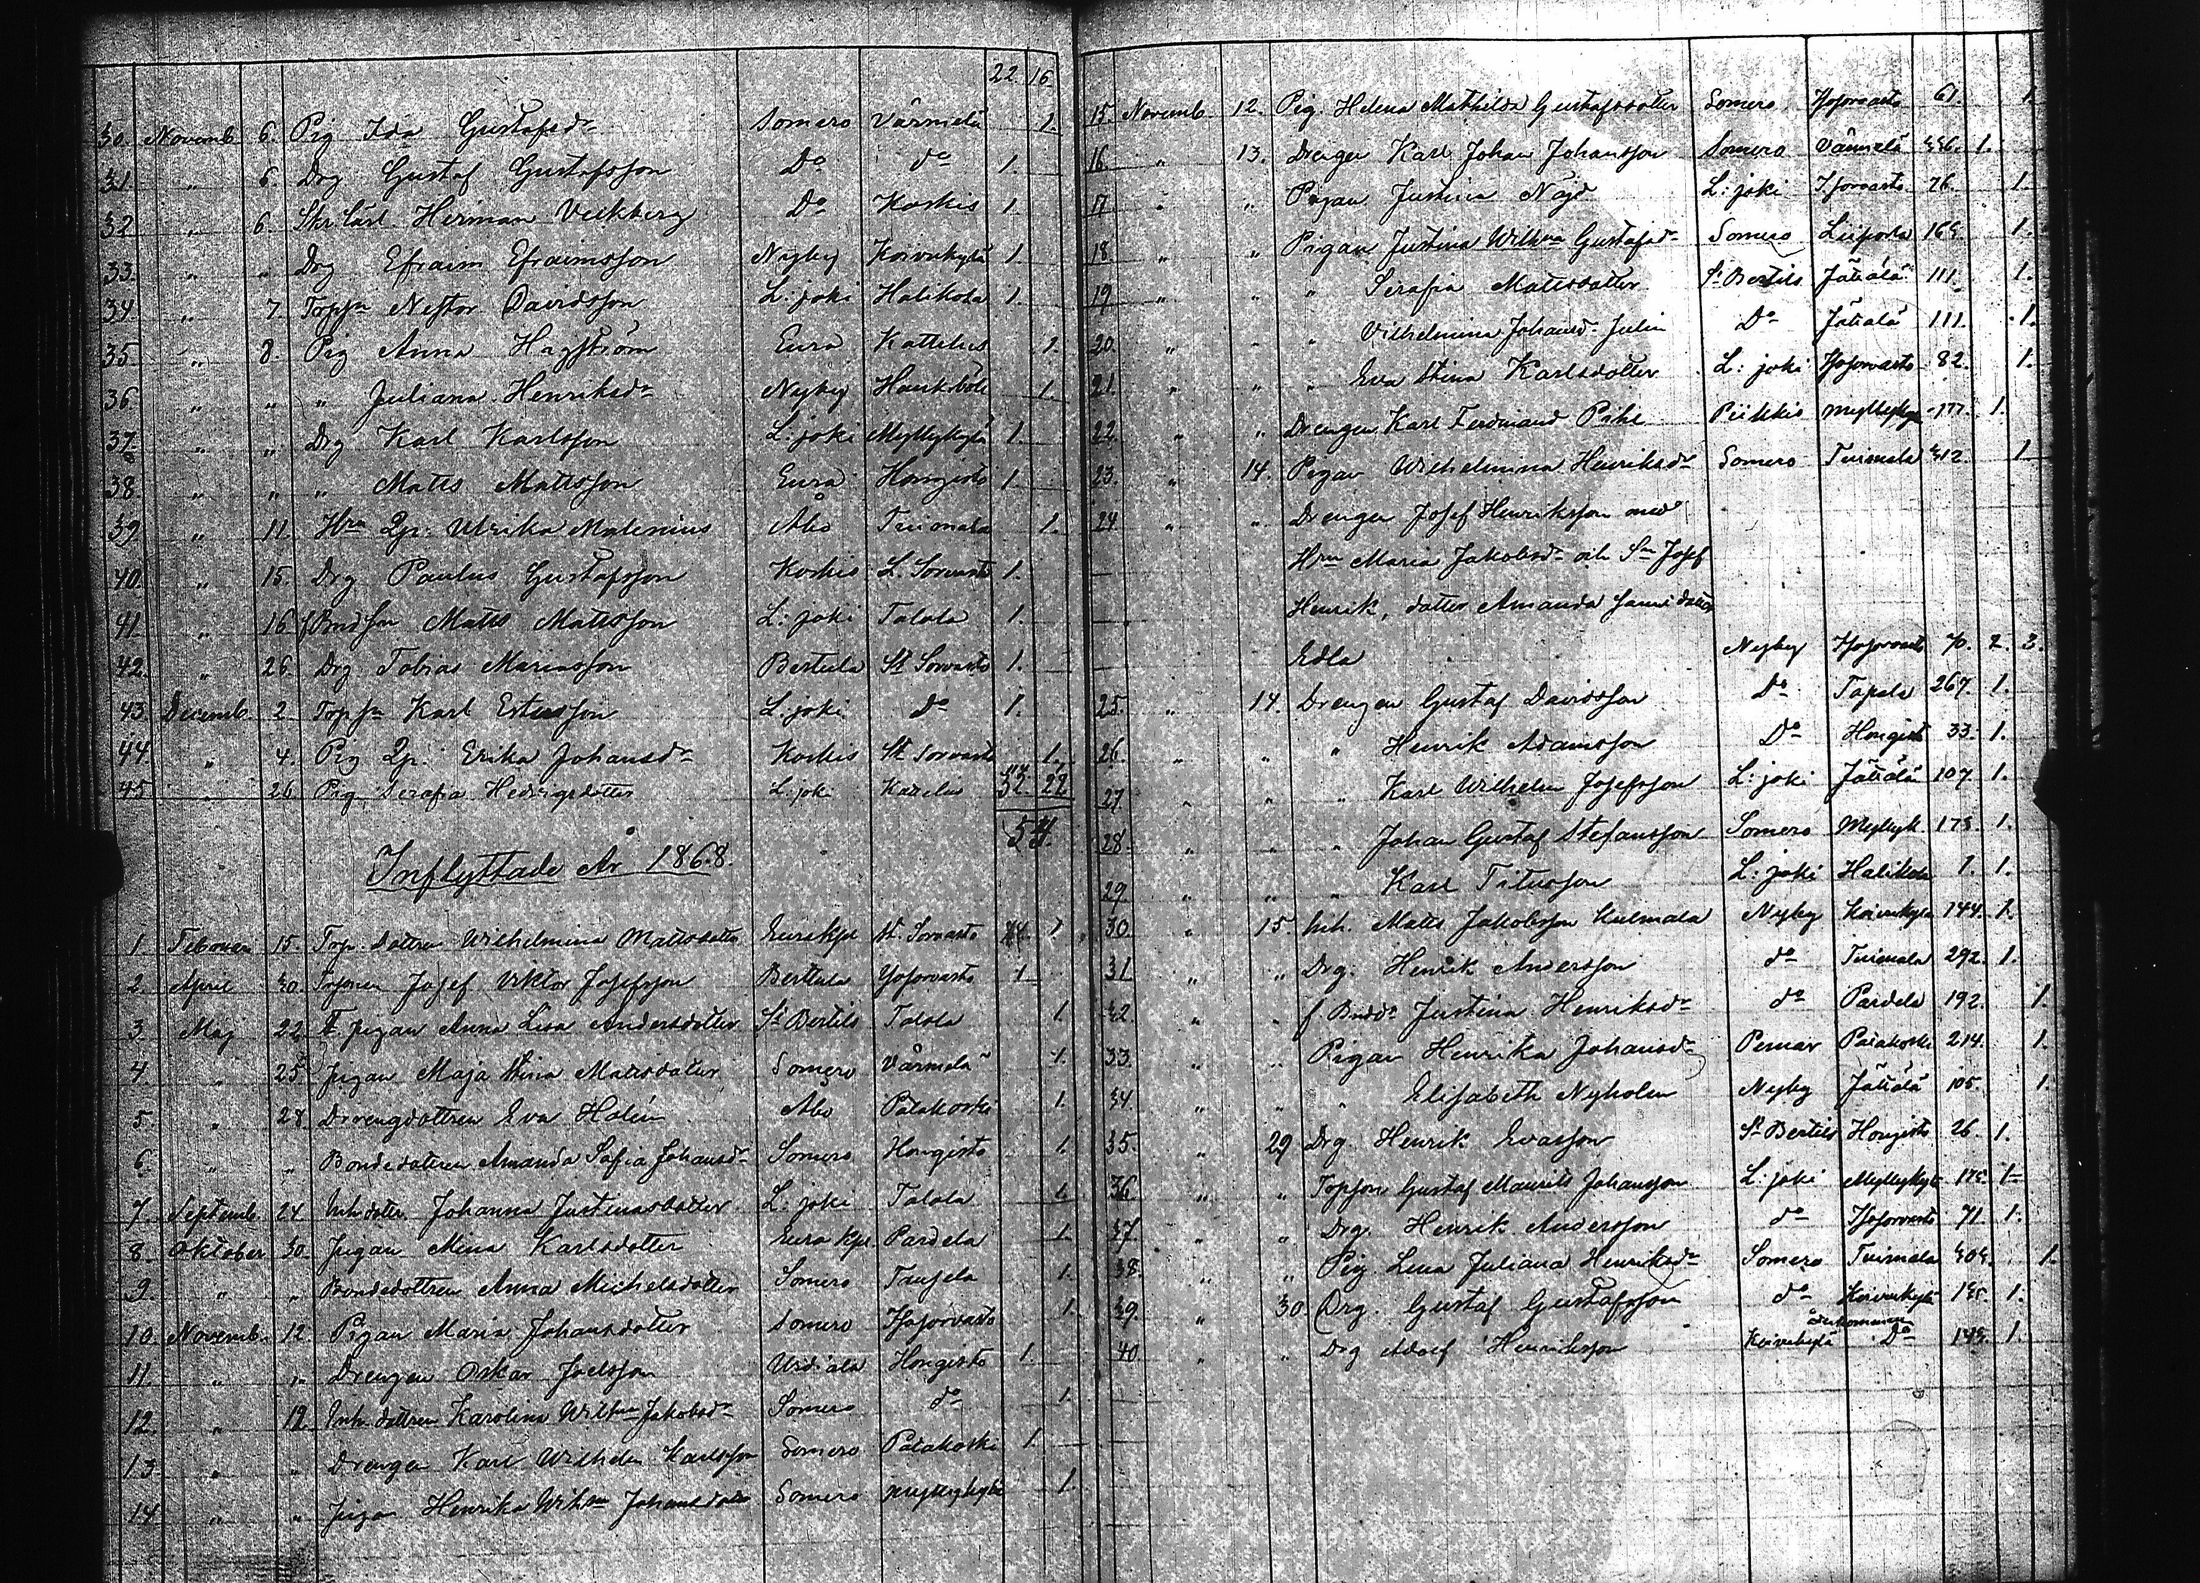 22. 16.
30. Novemb. 6. Pig Ida Gustafsdr Somero Värmelä 1.
31. " 6. Drg Gustaf Gustafsson Do do 1.
32 " 6. Skr lärl Herman Veckberg Do Koskis 1.
33. " " Drg Efraim Efraimsson Nyby Koivukylä 1.
34 " 7. Topsn Nestor Davidsson L: joki Halikola 1.
35 " 8. Pig Anna Hagström Eura Kattelus 1.
36. " " " Juliana Henriksdr Nyby Haukiböle 1.
37. " " Drg Karl Karlsson L: joki Myllykylä 1.
38. " " " Matts Mattsson Eura Hongisto 1.
39 " 11. Hru Qp: Ulrika Malenius Åbo Tuimala 1.
40. " 15. Drg Paulus Gustafsson Koskis L. Sorvasto 1.
41. " 16 f Bnd son Matts Mattsson L: joki Talola 1.
42. " 26. Drg Tobias Mariasson Bertula St Sorvasto 1.
43. Decemb. 2. Topsn Karl Ersson L: joki do 1.
44. " 4. Pig Qp: Erika Johansdr Koskis St Sorvasto 1.
45 " 26 Pig Serafia Hedvigsdotter L: joki Karelis 32. 22
54.
Inflyttade År 1868.
1. Februari 15. Top. dottren Wilhelmina Mattsdotter Eurakpl St. Sorvasto 1
2. April 30. Topsonen Josef Viktor Josefsson Bertula Isosorvasto 1
3. Maj 22. pigan Anna Lisa Andersdotter St Bertils Talola 1.
4. " 25 pigan Maja Stina Mattsdotter Somero Värmelä 1.
5. " 28. Drengdottren Eva Holén Åbo Palakoski 1.
6. " " Bondedottren Amanda Sofia Johansdr Somero Hongisto 1.
7. Septemb. 24 Inh dotter Johanna Justinasdotter L: joki Talola 1.
8. Oktober 30. pigan Mina Karlsdotter Eura kpl. Pardela 1.
9. " " Bondedottren Anna Michelsdotter Somero Taujela 1.
10. Novemb. 12. Pigan Maria Johansdotter Somero Isosorvasto 1.
11. " " Drengen Oskar Joelsson Urdiala Hongisto 1.
12. " 12. Inh. dottren Karolina Wilhna Jakobsdr Somero do 1.
13. " " Drengen Karl Wilhelm Karlsson Somero Palakoski 1.
14. " " pigan Henrika Wilhna Johansdotter Somero Myllykylä 1.
15. Novemb. 12. Pig. Helena Mathilda Gustafsdotter Somero Isosorvasto 61. 1.
16. " 13. Drengen Karl Johan Johansson Somero Värmelä 336. 1.
17 " " Pigan Justina Nöjd L: joki Isosorvasto 76. 1.
18. " " Pigan Justina Wilhna Gustafsdr Somero Liipola 1.
19 " " " Serafia Mattsdotter St Bertils Jätiälä 111. 1.
20. " " " Vilhelmina Johansdr Julin Do Jätiälä 111. 1.
21. " " " Eva Stina Karlsdotter L: joki Isosorvasto 82. 1.
22. " " Drengen Karl Ferdinand Pihl Piikkis Myllykylä 177. 1.
23. " 14. Pigan Wilhelmina Henriksdr Somero Tuimala 312. 1
24 " " Drengen Josef Henriksson med
Hru Maria Jakobsdr och Sn Josef
Henrik, dotter Amanda samt dotter
Edla Nyby Isosorvasto 70. 2. 3.
25. " 14. Drengen Gustaf Davidsson Do Tapala 267. 1.
26. " " " Henrik Adamsson Do Hongisto 33. 1.
27 " " " Karl Wilhelm Josefsson L: joki Jätiälä 107. 1.
28. " " " Johan Gustaf Stefansson Somero Myllyk. 175. 1.
29 " " " Karl Titusson L: joki Halikola 1. 1.
30 " 15. Inh. Matts Jakobsson Kulmala Nyby Koivukylä 144. 1.
31 " " Drg. Henrik Andersson do Tuimala 292. 1.
32. " " f Bndd. Justina Henriksdr do Pardela 192. 1.
33 " " Pigan Henrika Johansdr Pemar Palakoski 214. 1.
34. " " " Elisabeth Nyholm Nyby Jätiälä 105. 1.
35. " 29 Drg. Henrik Evasson St Bertils Hongisto 26. 1.
36. " " Topson Gustaf Maurits Johansson L: joki Myllykylä 175. 1
37. " " Drg. Henrik Andersson do Isosorvasto 71. 1.
38. " " Pig. Lena Juliana Henriksdr Somero Tuimala 1.
39. " 30. Drg. Gustaf Gustafsson do Koivukylä 135. 1.
40 " " Drg Adolf Henriksson Koivukylä Do 1.